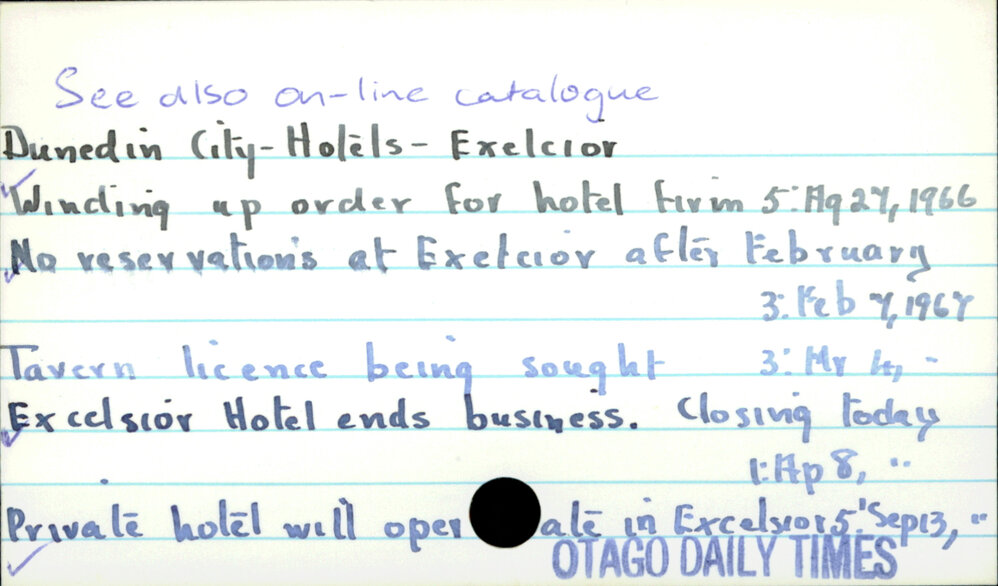 See also on-line catalogue
Dunedin City-Hotels- Exelcior
Winding up order for hotel firm 5:Ag 27, 1966
No reservations at Exelcior after February
3: Feb 7, 1967
Tavern licence being sought 3: Mr 4, "
Excelsior Hotel ends business. Closing today
1: Ap 8, "
Private hotel will operate in Excelsior 5: Sep 13, "
OTAGO DAILY TIMES